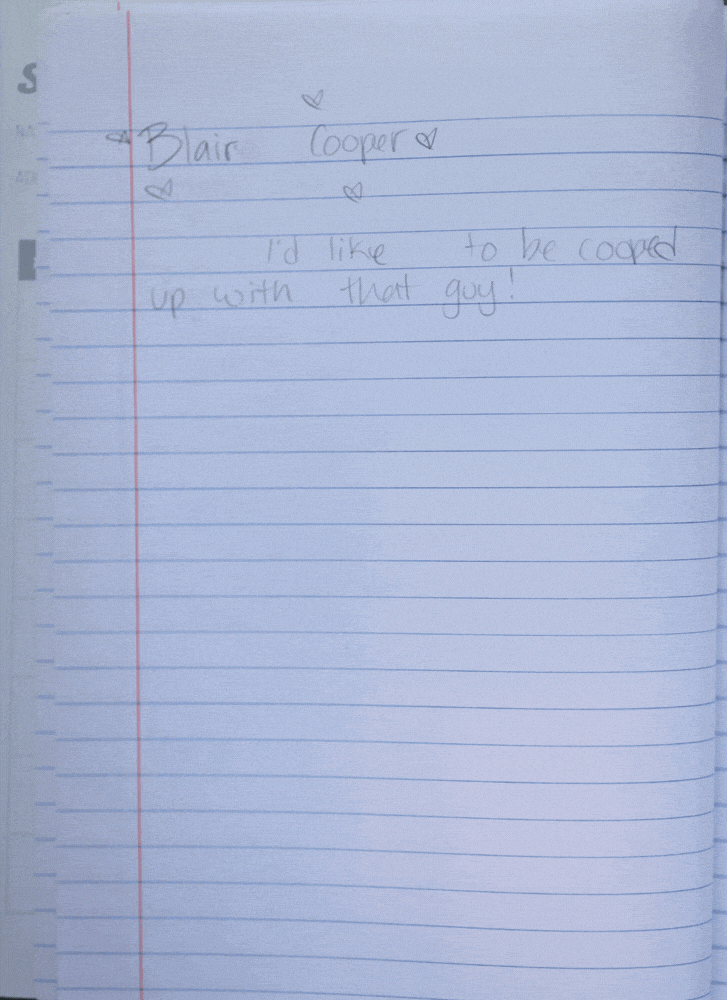 Blair Cooper
I'd like to be cooped
up with that guy!